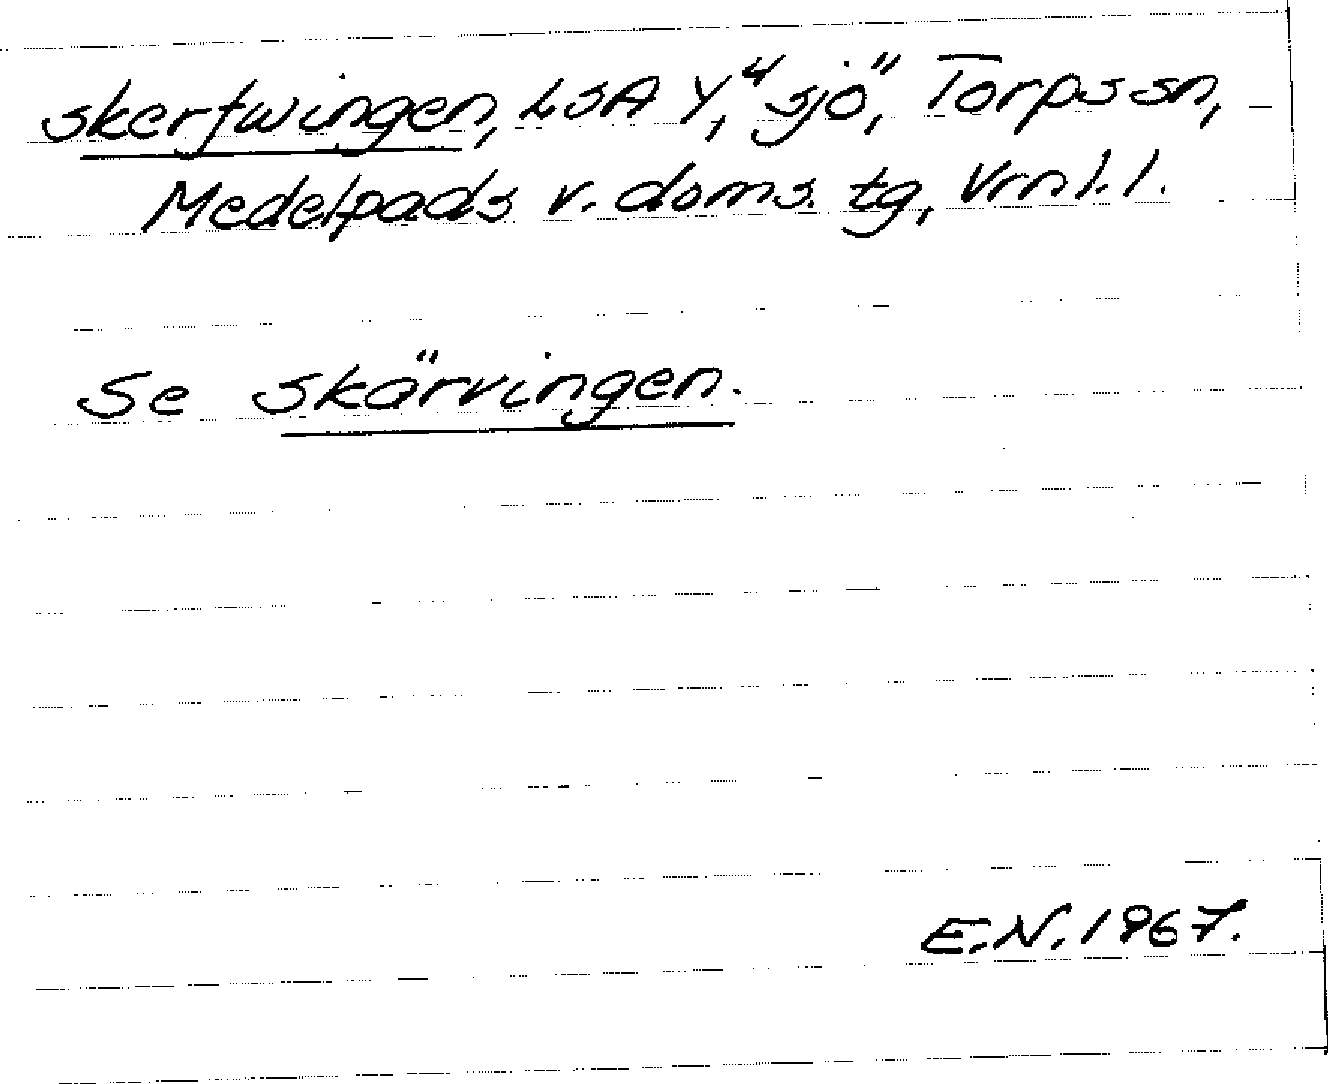 skerfwingen, LSA Y,⁴ "sjö", Torps sn,
Medelpads v. doms. tg, Vrnl. l.
Se skärvingen.
E.N. 1967.